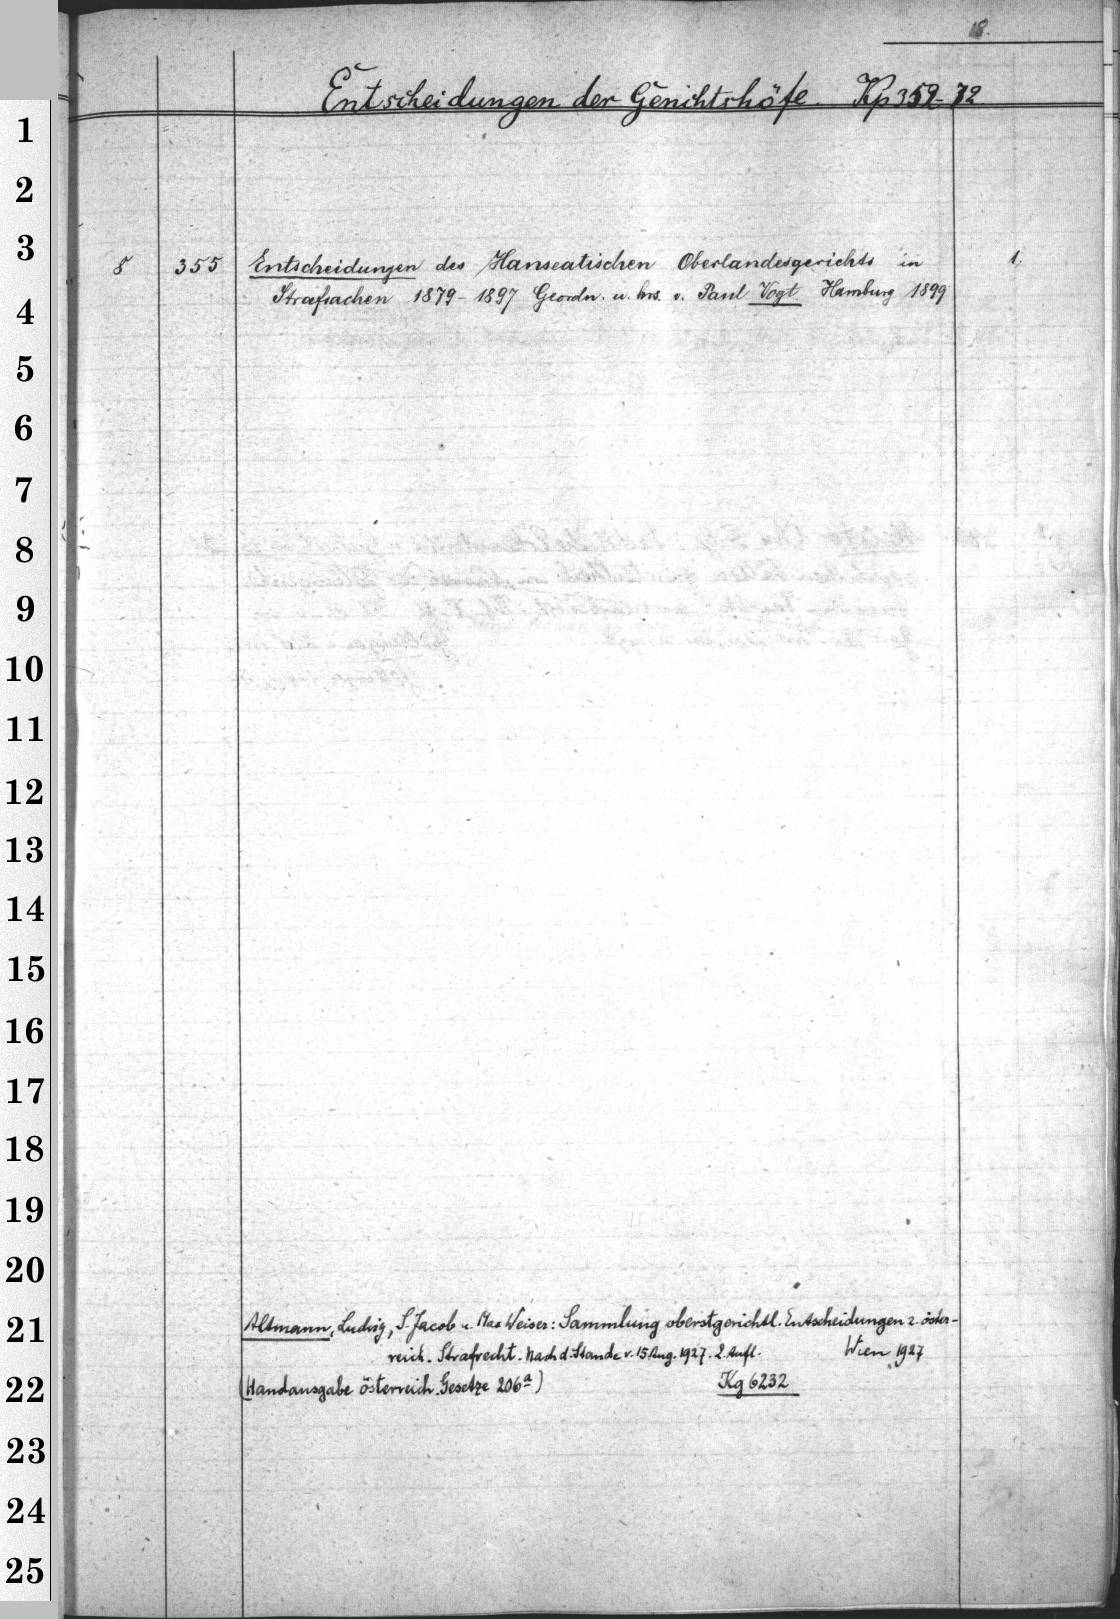 18.
Entscheidungen der Gerichtshöfe. Kp 359-72
1
2
3
8 355 Entscheidungen des Hanseatischen Oberlandesgerichts in 1.
Strafsachen 1879-1897 Geordn. u. hrs. v. Paul Vogt Hamburg 1899
4
5
6
7
8
9
10
11
12
13
14
15
16
17
18
19
20
21
Altmann, Ludwig, S. Jacob u. Max Weiser: Sammlung oberstgerichtl. Entscheidungen z. öster-
reich. Strafrecht. Nach d. Stande v. 15 Aug. 1927. 2. Aufl. Wien 1927
22
(Handausgabe österreich. Gesetze 206a) Kg 6232
23
24
25